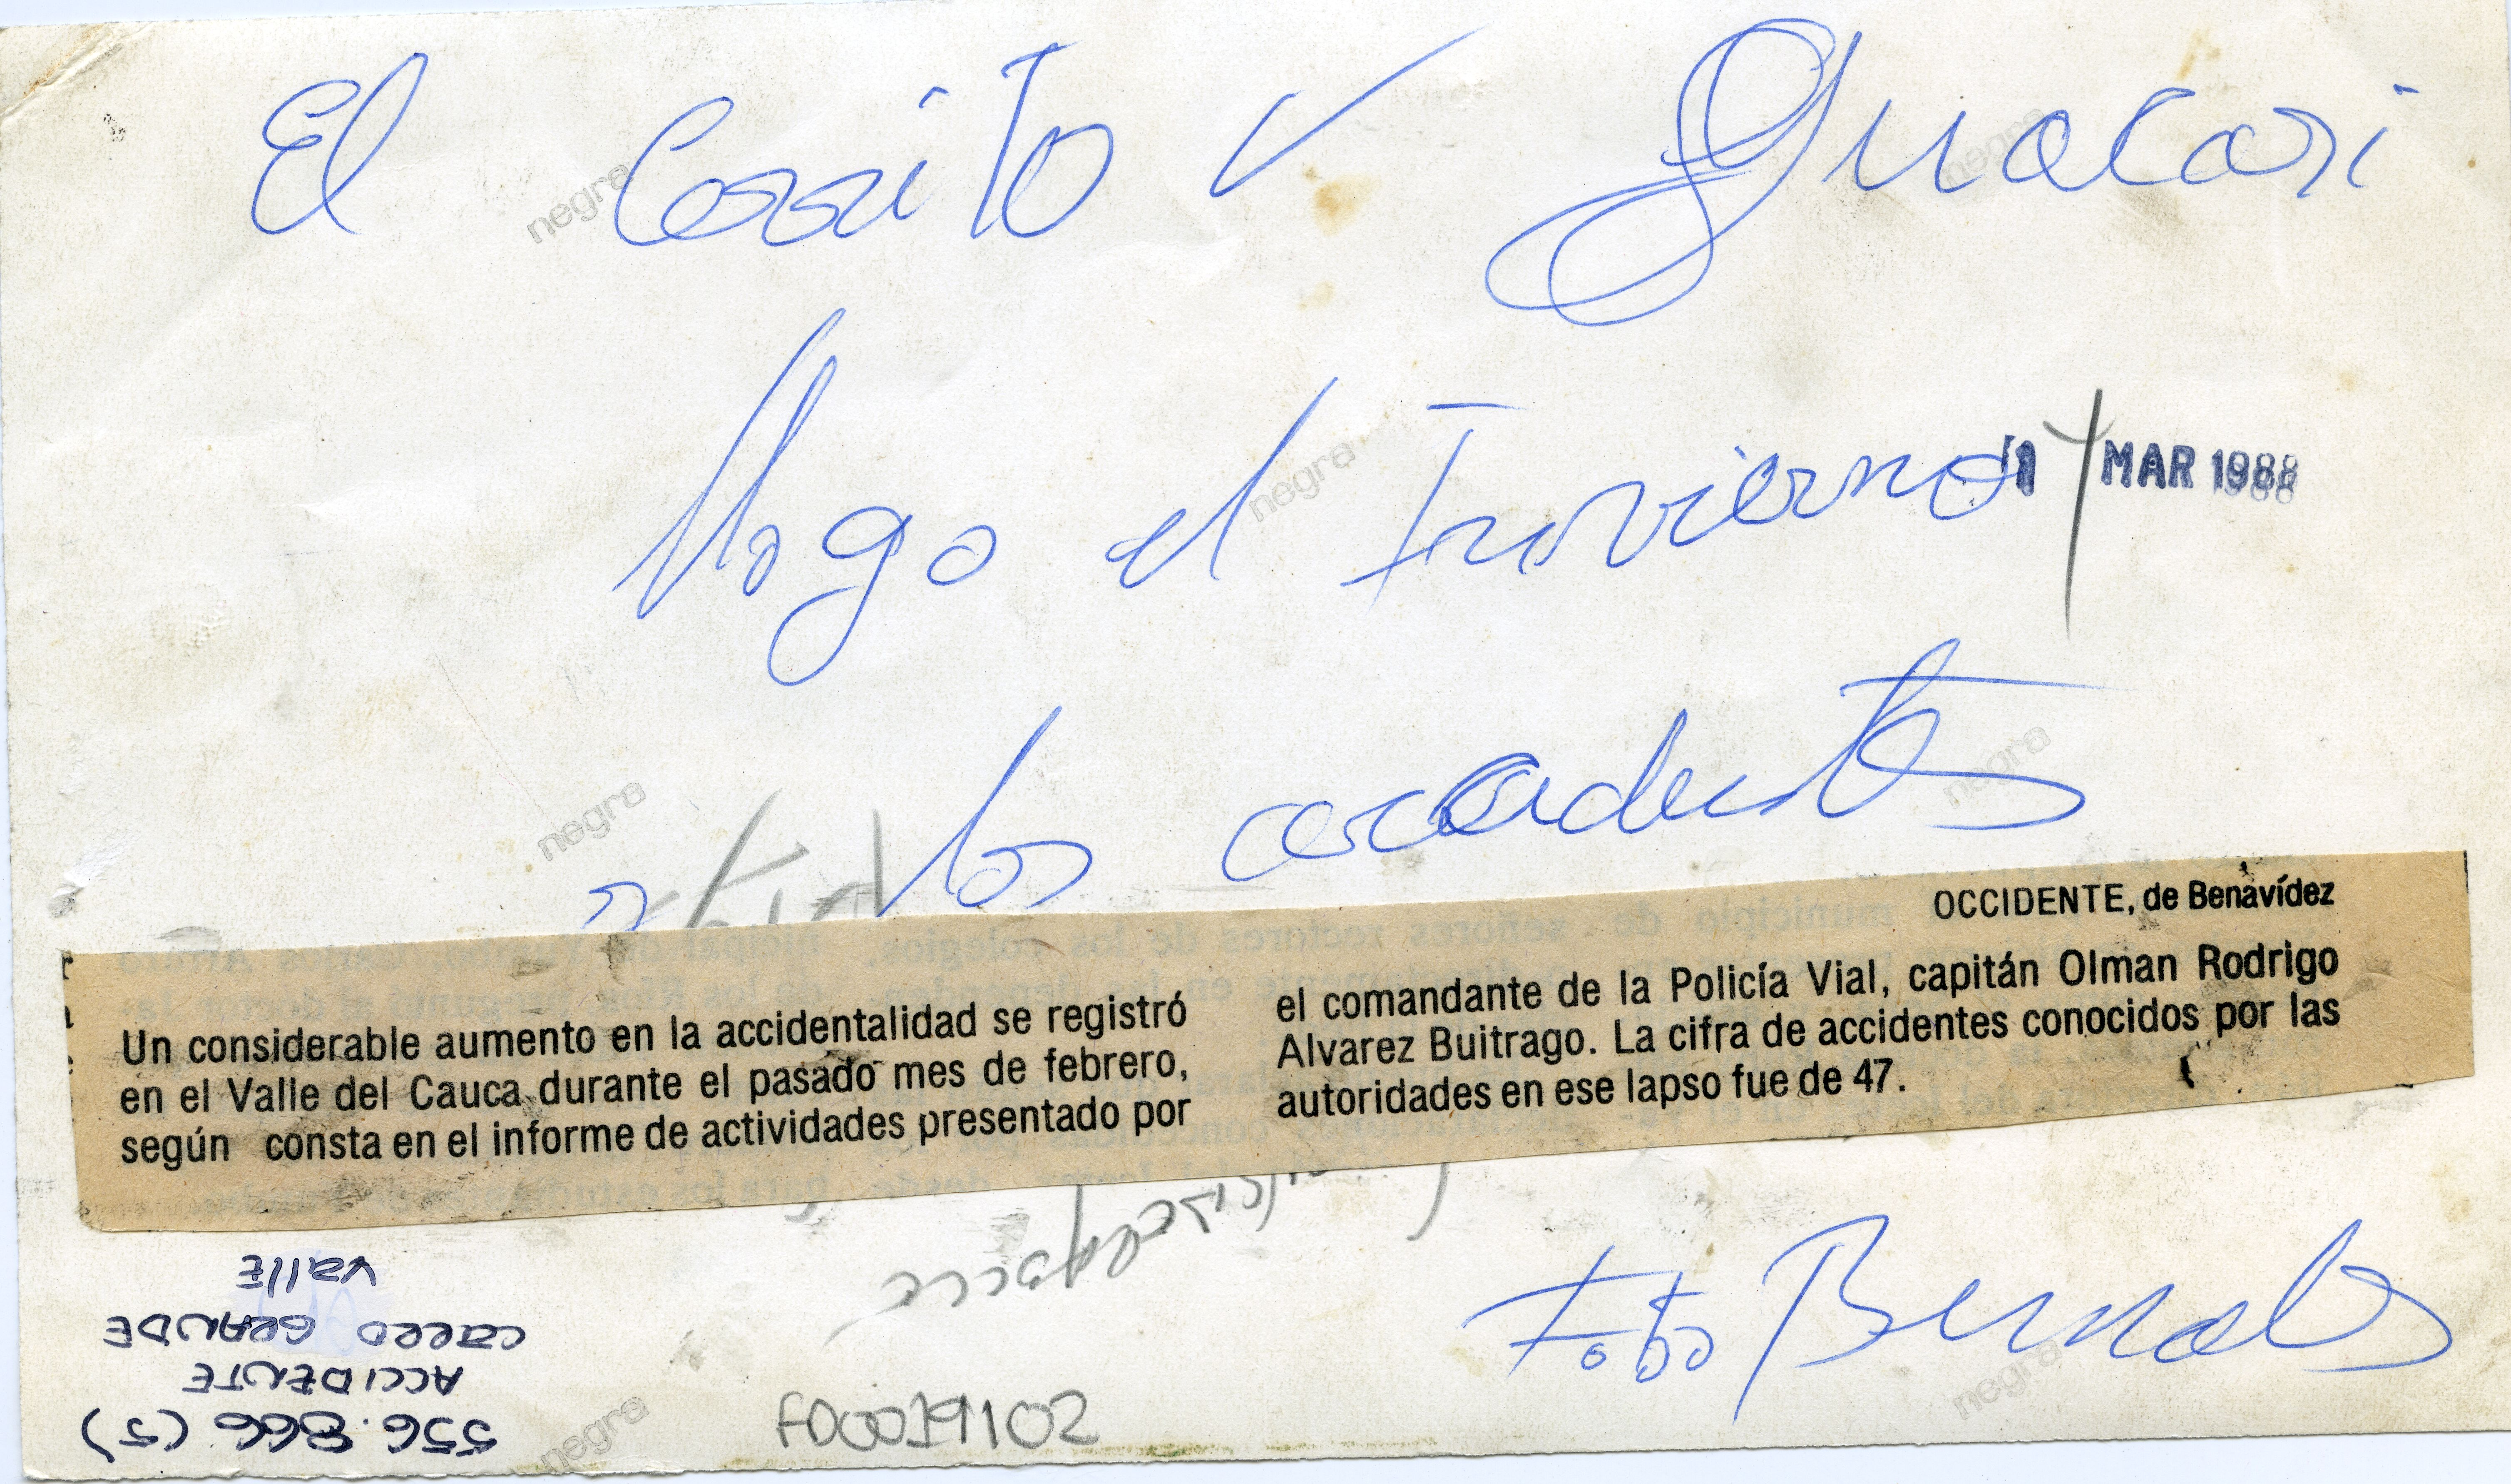 El Cerrito y Guacari
llego el Invierno
MAR 1988
y los accidentes
OCCIDENTE, de Benavídez
Un considerable aumento en la accidentalidad se registró
en el Valle del Cauca durante el pasado mes de febrero,
según consta en el informe de actividades presentado por
el comandante de la Policía Vial, capitán Olman Rodrigo
Alvarez Buitrago. La cifra de accidentes conocidos por las
autoridades en ese lapso fue de 47.
Foto Bernates
556.866 (5)
ACCIDENTE
CARRO GRANDE
VALLE
F00079102
negra
negra
negra
negra
negra
negra
negra